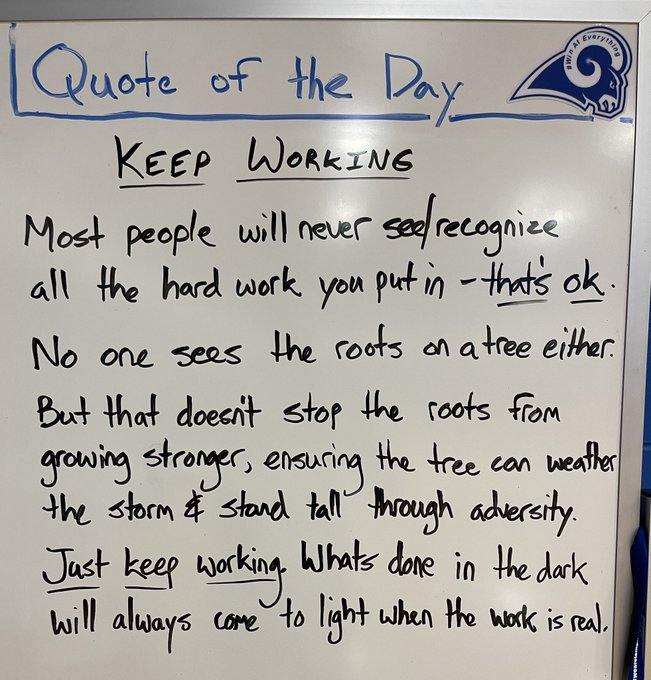 Quote of the Day
#Win At Everything
KEEP WORKING
Most people will never see/recognize
all the hard work you put in - that's ok.
No one sees the roots on a tree either.
But that doesn't stop the roots from
growing stronger, ensuring the tree can weather
the storm & stand tall through adversity.
Just keep working. Whats done in the dark
will always come to light when the work is real.